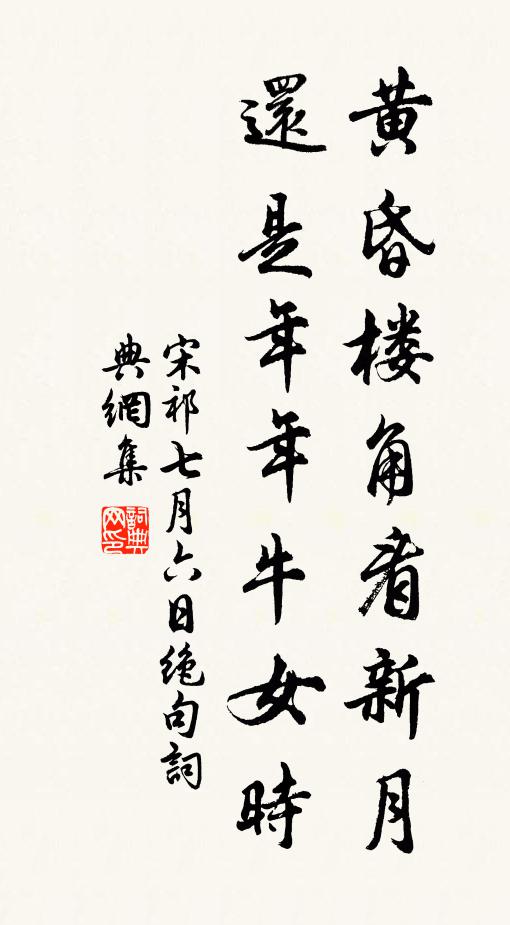 黄昏楼角看新月
還是年年牛女時
宋祁七月六日绝句詞
典網集
詞典
网印